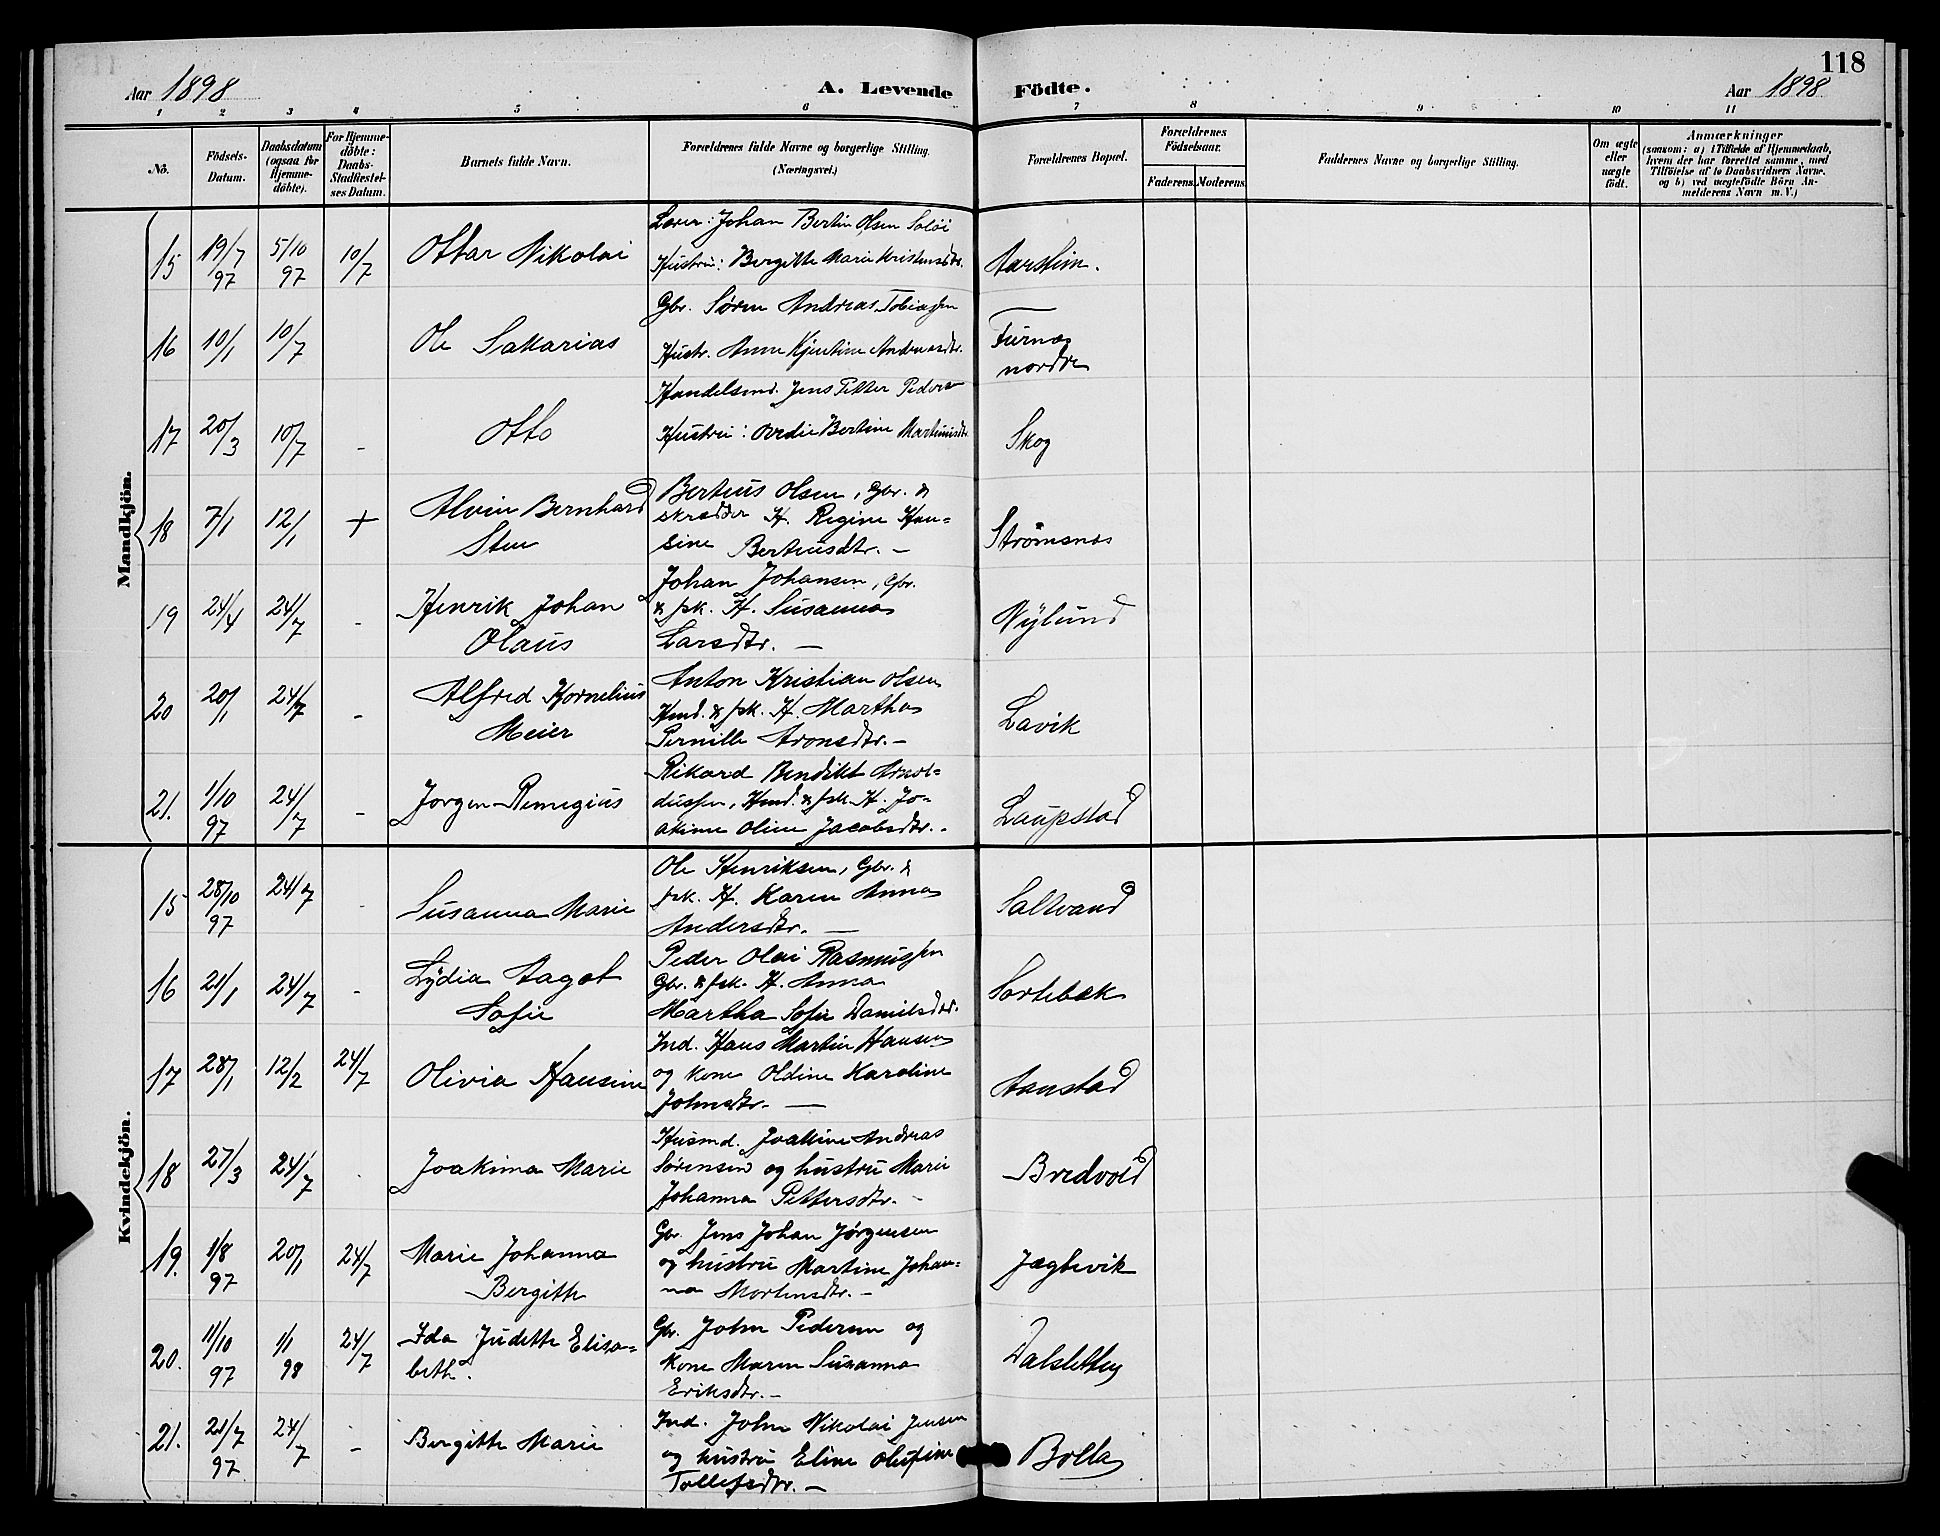 118
Aar 1898
A. Levende
Födte.
Aar 1898
1 2 3 4 5 6 7 8 9 10 11
No.
Födsels-Datum.
Daabsdatum (ogsaa for Hjemme-döbte).
For Hjemme-döbte: Daabs-Stadfæstel-ses Datum.
Barnets fulde Navn.
Forældrenes fulde Navne og borgerlige Stilling.
(Næringsvei.)
Forældrenes Bopæl.
Forældrenes Födselsaar.
Faderens. Moderens.
Faddernes Navne og borgerlig Stilling.
Om ægte eller uægte födt.
Anmærkninger
(saasom: a) i Tilfælde af Hjemmedaab,
hvem der har forrettet samme, med
Tilföielse af to Daabsvidners Navne,
og b) ved uægtefödte Börn An-
melderens Navn m. V.)
Mandkjön.
15 19/7 97 5/10 97 10/7 Ottar Nikolai
Lærer: Johan Bertin Olsen Solöi
Hustru: Bergitte Marie Kristensdtr.
Aarstein.
16 10/1 10/7 Ole Sakarias
Gbr. Søren Andreas Tobiassen
Hustr. Anne Kjerstine Andreasdtr.
Furnæs
nordre
17 20/3 10/7 - Otto
Handelsmd. Jens Petter Pedersen
Hustru: Ovedie Bertine Martinusdtr.
Skog
18 7/1 12/1 + Alvin Bernhard
Sten
Berteus Olsen, Gbr. &
skrædder H. Regine Han=
sine Berteusdtr. —
Strömsnes
19 24/4 24/7 - Henrik Johan
Olaus
Johan Johansen, Gbr.
& fsk. H. Susanna
Larsdtr. —
Nylund
20 20/1 24/7 - Alfred Kornelius
Meier
Anton Kristian Olsen
Hmd. & fsk. H. Martha
Pernille Aronsdtr. —
Lavik
21. 1/10 97 24/7 - Jørgen Remigius
Rikard Bendikt Arnol=
dussen, Hmd. & fsk. H. Jo=
akime Oline Jacobsdtr. -
Laupstad
Kvindekjön.
15 28/10 97 24/7 - Susanna Marie
Ole Henriksen, Gbr. &
fsk. H. Karen Anna
Andersdtr. —
Saltvand
16 21/1 24/7 - Lydia Aagot
Sofie
Peder Olai Rasmussen
Gbr. & fsk. H. Anna
Martha Sofie Danielsdtr.
Sortebæk
17 28/1 12/2 24/7 Olivia Hansine
Ind. Hans Martin Hansen
og kone Oldine Karoline
Johnsdtr. —
Aanstad
18 27/3 24/7 Joakima Marie
Husmd. Joakim Andreas
Sørensen og hustru Marie
Johanna Pettersdtr. -
Bredvold
19. 1/8 97 20/1 24/7 Marie Johanna
Bergitte
Gbr. Jens Johan Jørgensen
og hustru Martine Johan=
na Mortensdtr. —
Jægtevik
20. 11/10 97 1/1 98 24/7 Ida Judette Elisa=
beth.
Gbr. John Pedersen og
kone Maren Susanna
Eriksdtr. —
Dalsletten
21. 21/7 97 24/7 - Bergitte Marie
Ind. John Nikolai Jensen
og hustru Eline Olufine
Tollefsdtr. —
Bolla